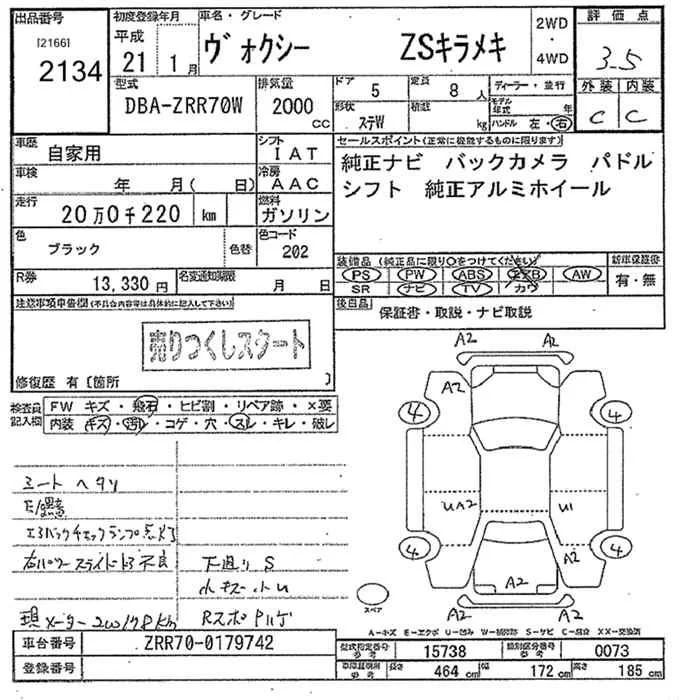 出品番号
[2166]
2134
初度登録年月
平成
21 1月
車名・グレード
ヴォクシー ZSキラメキ
2WD
・
4WD
評価点
3.5
外装 内装
C C
型式
DBA-ZRR70W
排気量
2000
CC
ドア 5
定員 8人
形状 ステW
積載 kg
ディーラー・並行
モデル年式 年
ハンドル 左・右
車歴 自家用
シフト IAT
車検 年 月( 日)
冷房 AAC
走行 20万0千220 km
燃料 ガソリン
色 ブラック 色替
色コード 202
R券 13,330円
名変通知期限 月 日
セールスポイント(正常に機能するものに限ります)
純正ナビ バックカメラ パドル
シフト 純正アルミホイール
装備品(純正品に限り○をつけてください)
PS PW ABS エアB AW
SR ナビ TV カワ
新車保証書
有・無
後日品
保証書・取説・ナビ取説
注意事項申告欄(不具合内容等は具体的に記入して下さい)
売りつくしスタート
修復歴 有[箇所 ]
検査員記入欄
FW キズ・飛石・ヒビ割・リペア跡・×要
内装 キズ・汚レ・コゲ・穴・スレ・キレ・破レ
シートヘタリ
エアバックチェックランプ点灯
右パワースライドドア不良
下廻りS
小キズ・小U
A2 A2
A2
4 4
UA2 U1
4 4
A2
A2
A2 A2
スペア
A-キズ E-エクボ U-凹み W-補修跡 S-サビ C-腐食 XX-交換済
車台番号 ZRR70-0179742
登録番号
型式指定番号 参考 15738
類別区分番号 参考 0073
車障証明用 参考 長さ 464 cm 幅 172 cm 高さ 185 cm